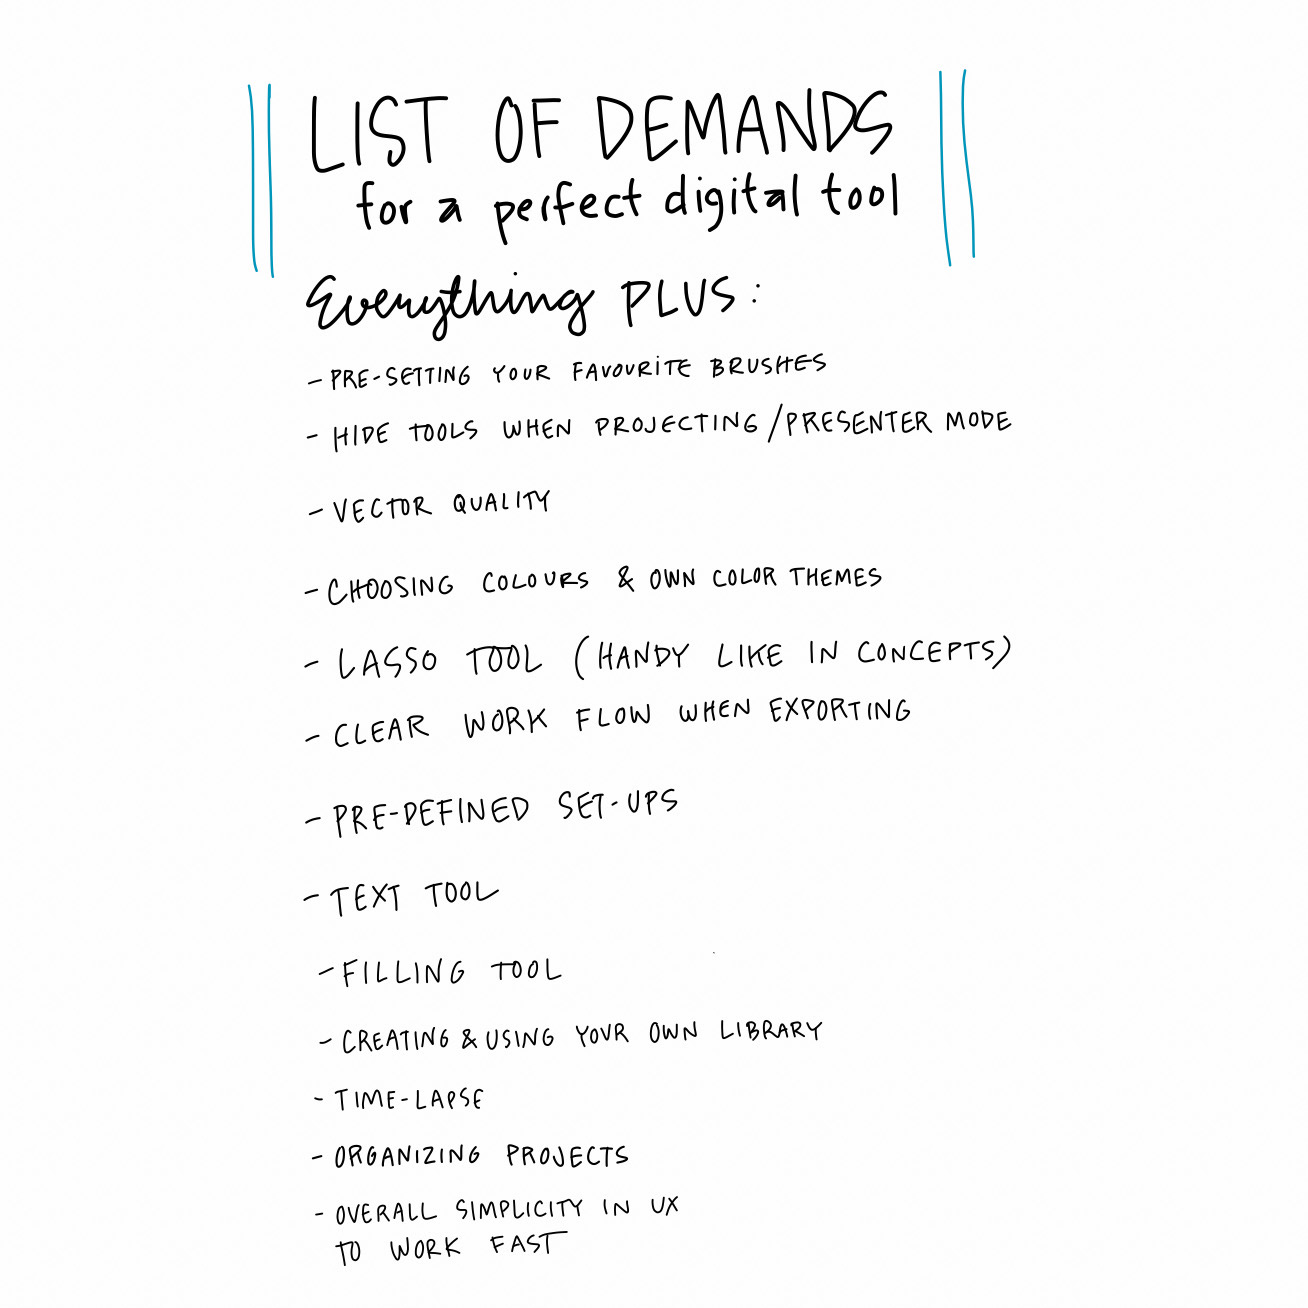 LIST OF DEMANDS
for a perfect digital tool
Everything PLUS:
- PRE-SETTING YOUR FAVOURITE BRUSHES
- HIDE TOOLS WHEN PROJECTING/PRESENTER MODE
- VECTOR QUALITY
- CHOOSING COLOURS & OWN COLOR THEMES
- LASSO TOOL (HANDY LIKE IN CONCEPTS)
- CLEAR WORK FLOW WHEN EXPORTING
- PRE-DEFINED SET-UPS
- TEXT TOOL
- FILLING TOOL
- CREATING & USING YOUR OWN LIBRARY
- TIME-LAPSE
- ORGANIZING PROJECTS
- OVERALL SIMPLICITY IN UX
TO WORK FAST